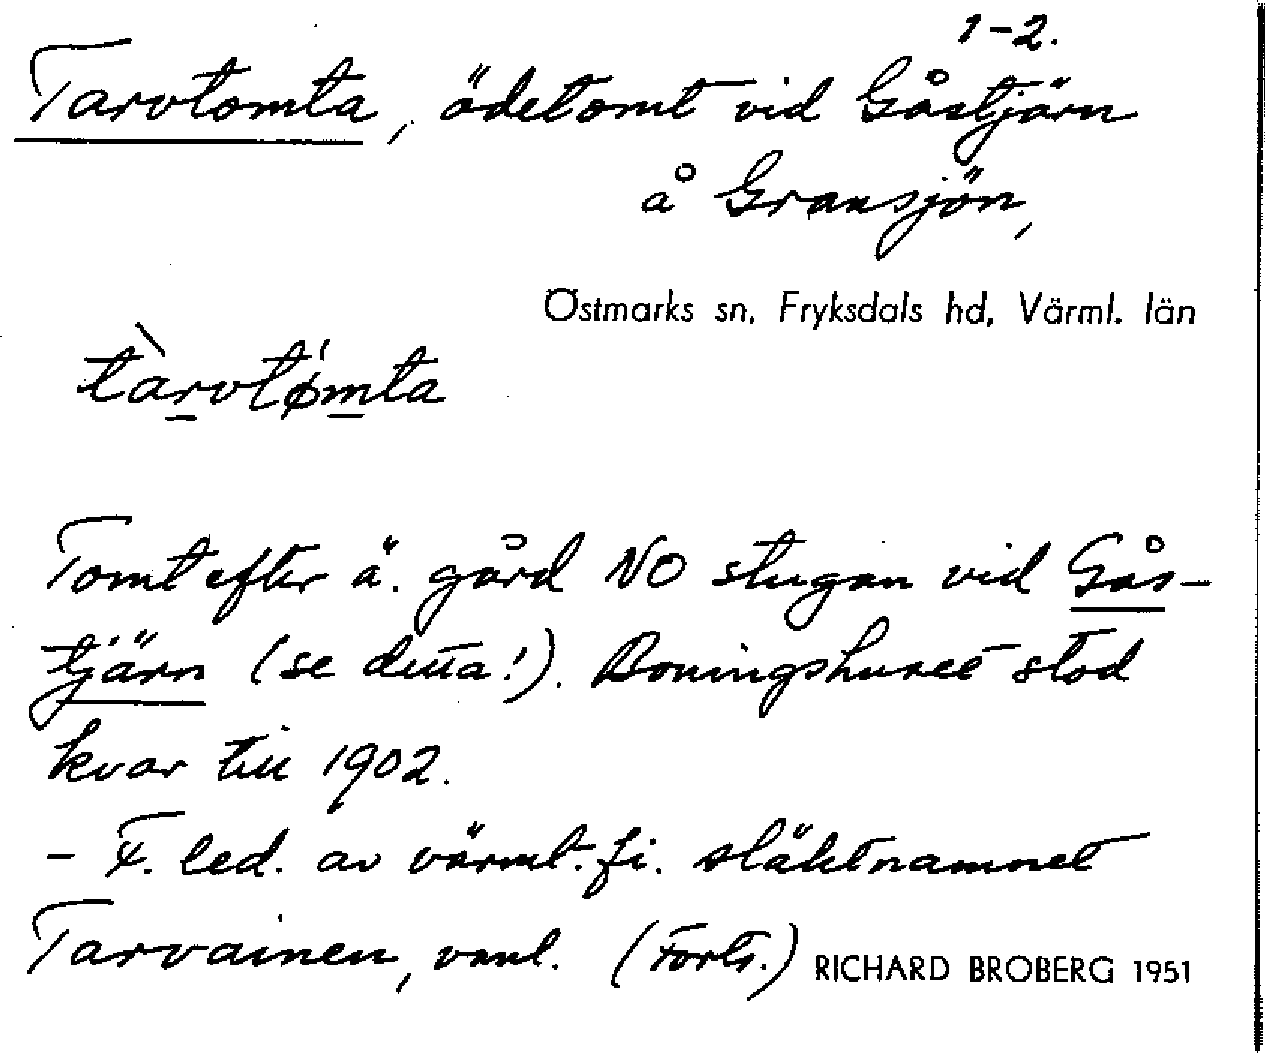 1-2.
Tarvtomta, ödetomt vid Gåstjärn
å Gransjön,
Östmarks sn, Fryksdals hd, Värml. län
tàrvtǿmta
Tomt efter ä. gård NO stugan vid Gås-
tjärn (se detta!). Boningshuset stod
kvar till 1902.
- F. led. av värml. fi. släktnamnet
Tarvainen, vanl. (Forts.) RICHARD BROBERG 1951